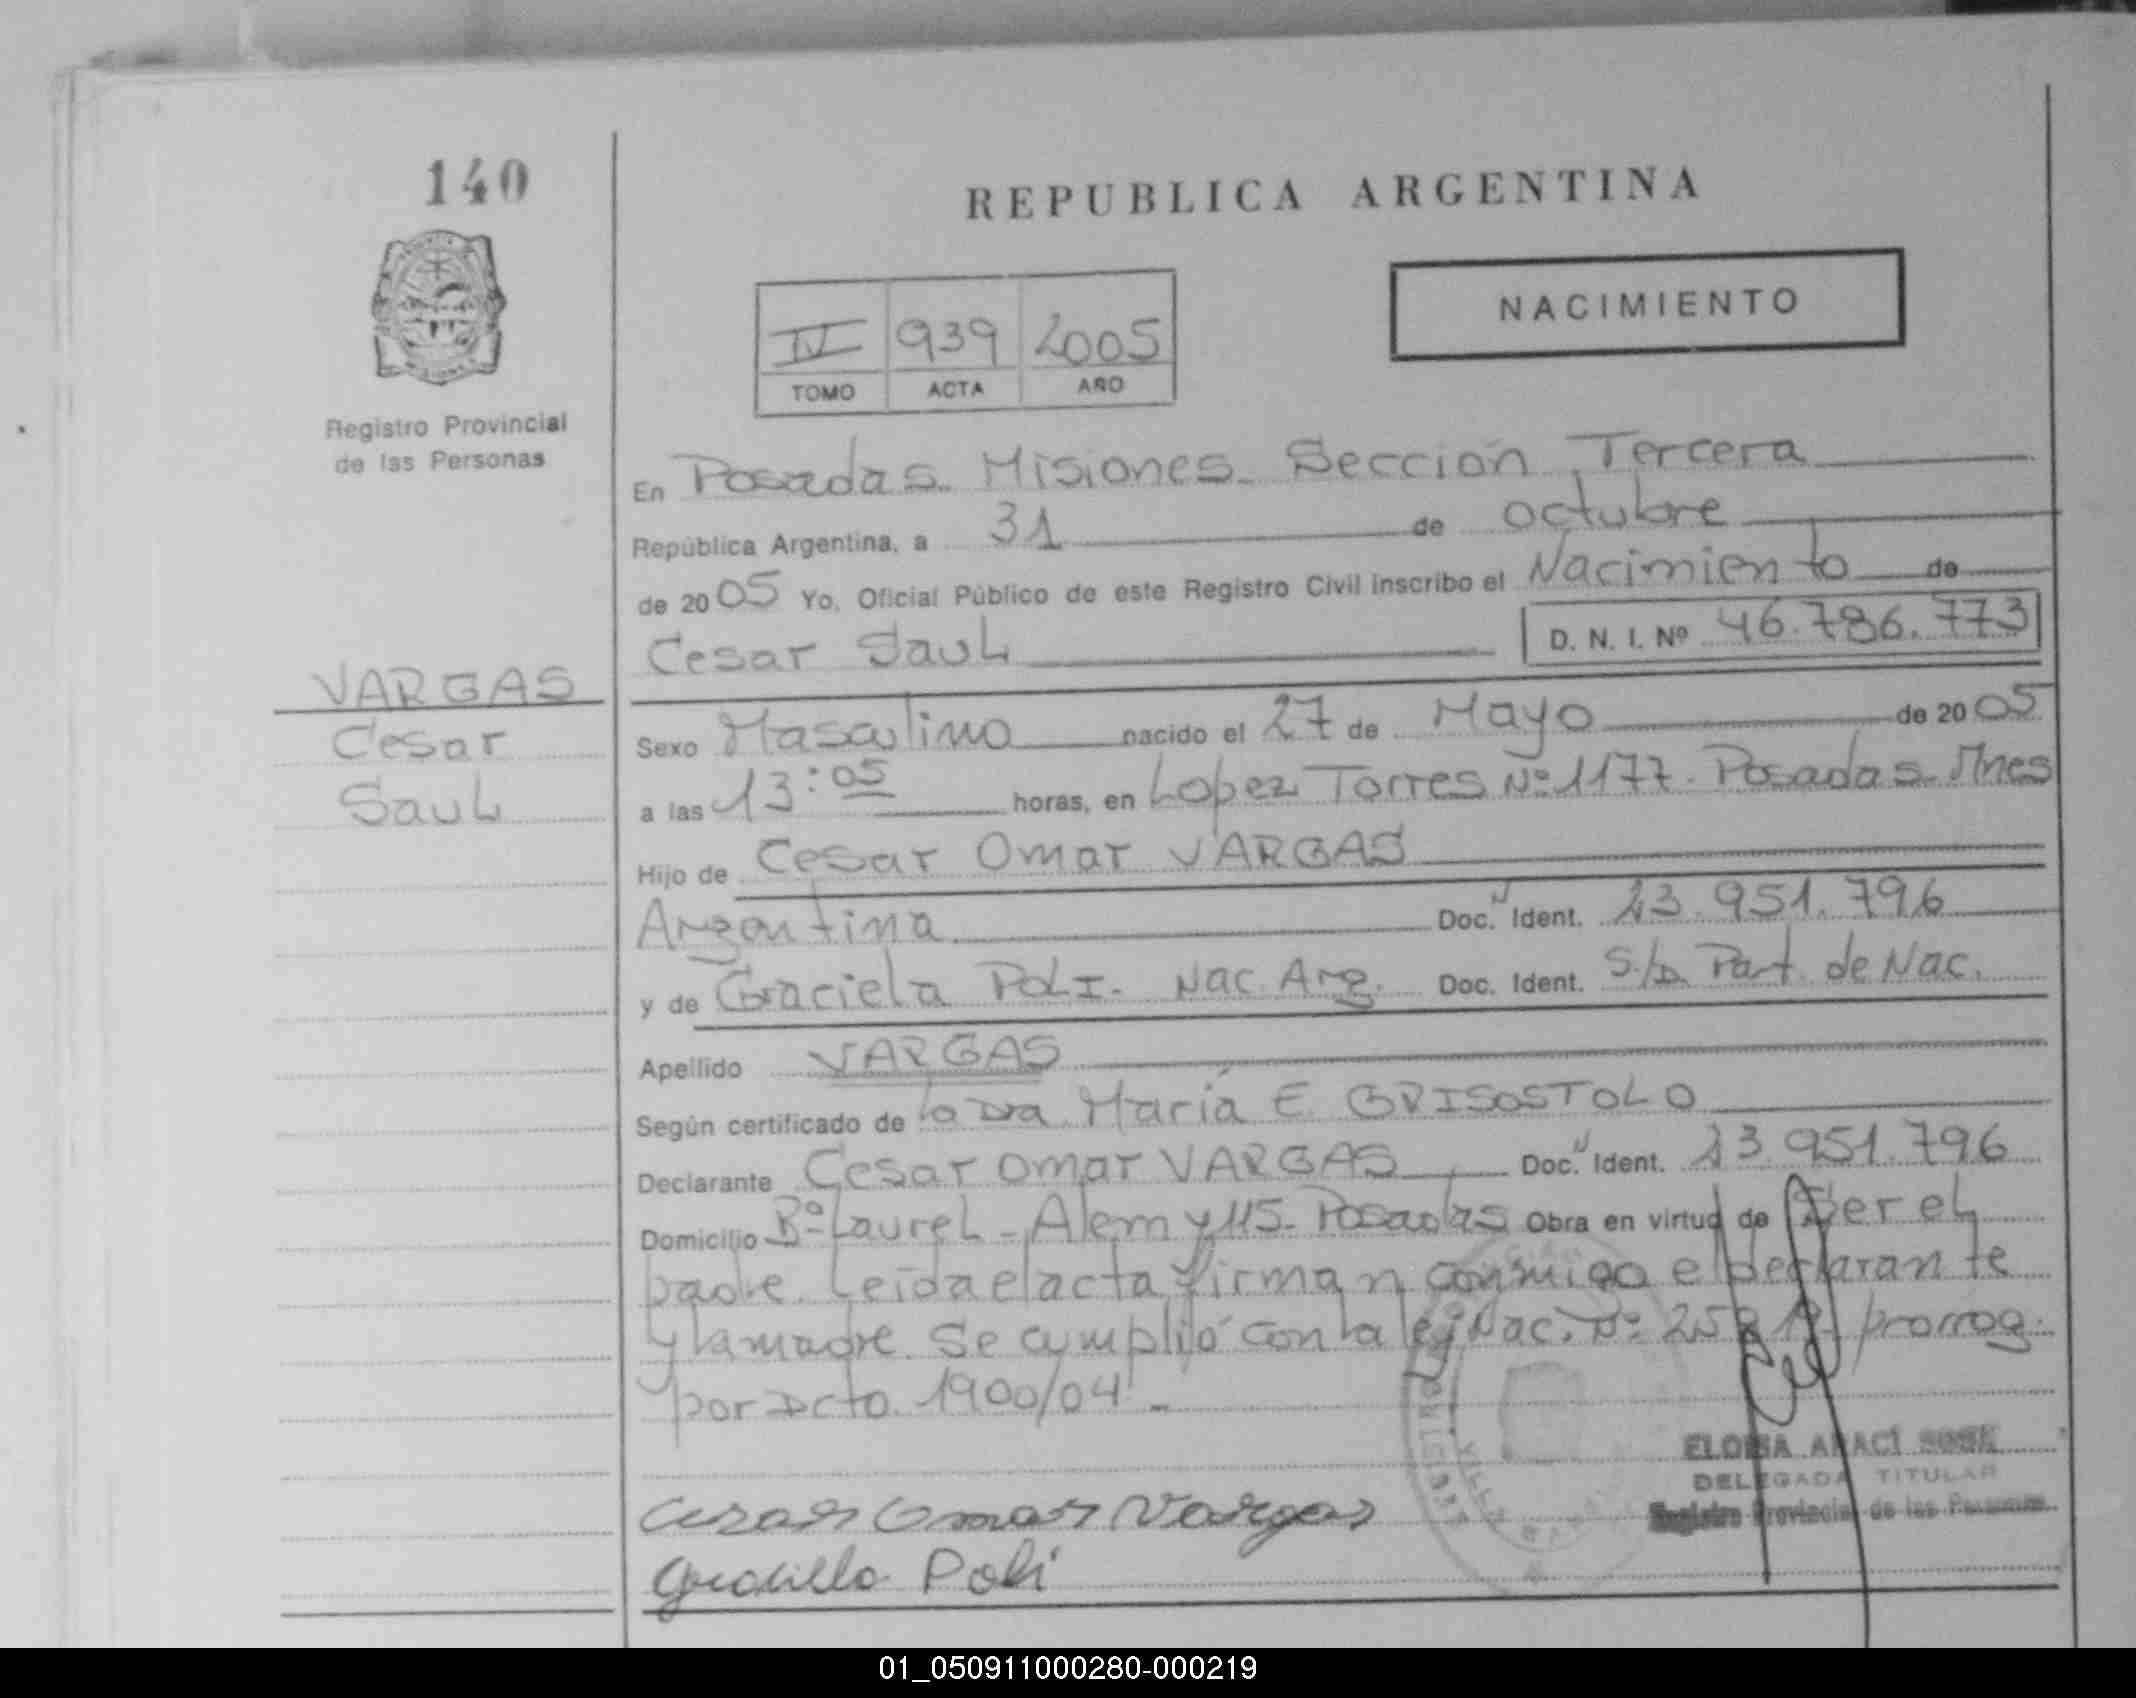 140
REPUBLICA ARGENTINA
NACIMIENTO
IV 939 2005
TOMO ACTA AÑO
Registro Provincial
de las Personas
En Posadas. Misiones. Sección Tercera
República Argentina, a 31 de octubre
de 2005 Yo, Oficial Público de este Registro Civil inscribo el Nacimiento de
Cesar Saul D. N. I. Nº 46.786.773
VARGAS
Cesar
Saul
Sexo Masculino nacido el 27 de Mayo de 2005
a las 13:05 horas, en Lopez Torres Nº 1177. Posadas. Mnes
Hijo de Cesar Omar VARGAS
Argentina Doc. Ident. 23.951.796
y de Graciela POLI. Nac. Arg. Doc. Ident. S/D. Part. de Nac.
Apellido VARGAS
Según certificado de la Dra. María E.
Declarante Cesar Omar VARGAS Doc. Ident. 23.951.796
Domicilio Bº Laurel - Alem y 115 - Posadas Obra en virtud de Ser el
padre. Leída el acta firman conmigo el declarante
y la madre. Se cumplió con la ley Nac. Nº prorrog.
por Dcto. 1900/04. -
DELEGADA TITULAR
Registro Provincial de las Personas
Cesar Omar Vargas
Poli
01_050911000280-000219